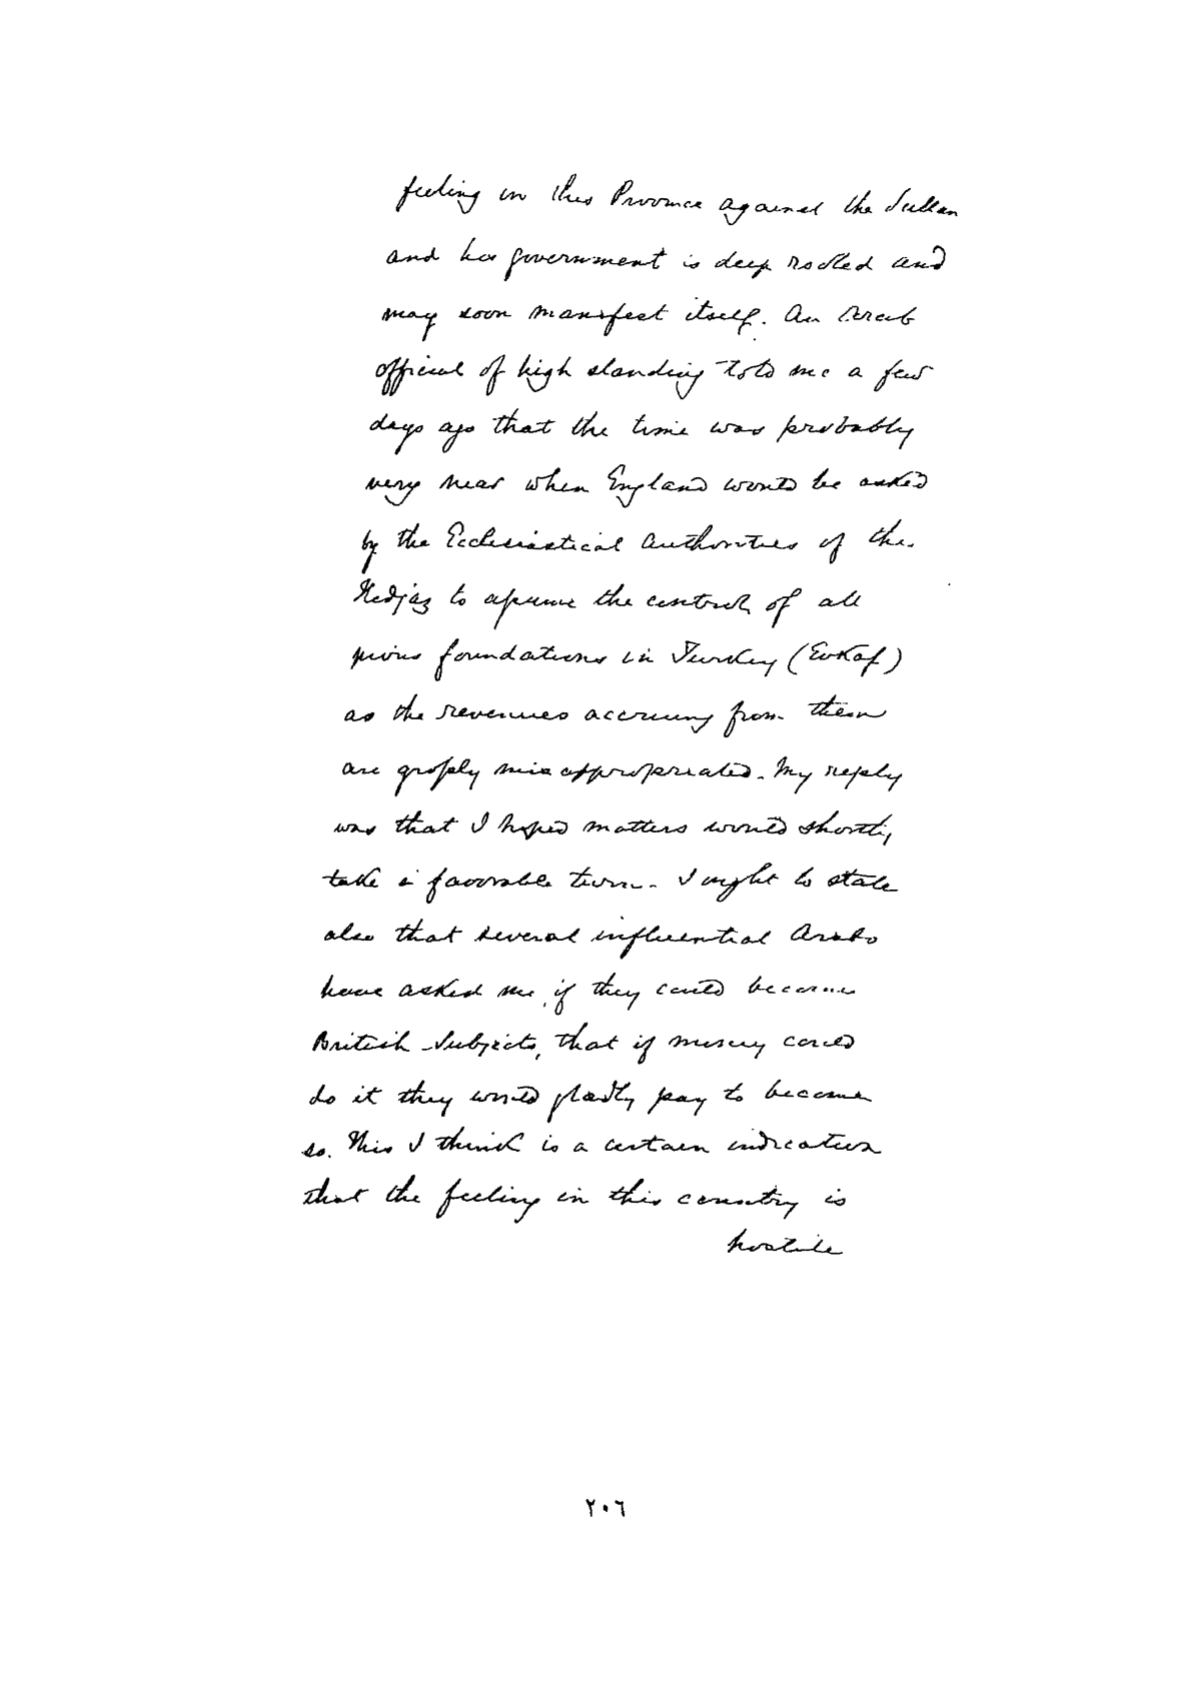 feeling in this Province against the Sultan
and his government is deep rooted and
may soon manifest itself. An Arab
official of high standing told me a few
days ago that the time was probably
very near when England would be asked
by the Ecclesiastical Authorities of the
Hedjaz to assume the control of all
pious foundations in Turkey (Evkaf)
as the revenues accruing from them
are grossly misappropriated. My reply
was that I hoped matters would shortly
take a favorable turn. I ought to state
also that several influential Arabs
have asked me, if they could become
British Subjects, that if money could
do it they would gladly pay to become
so. This I think is a certain indication
that the feeling in this country is
hostile
٢٠٦